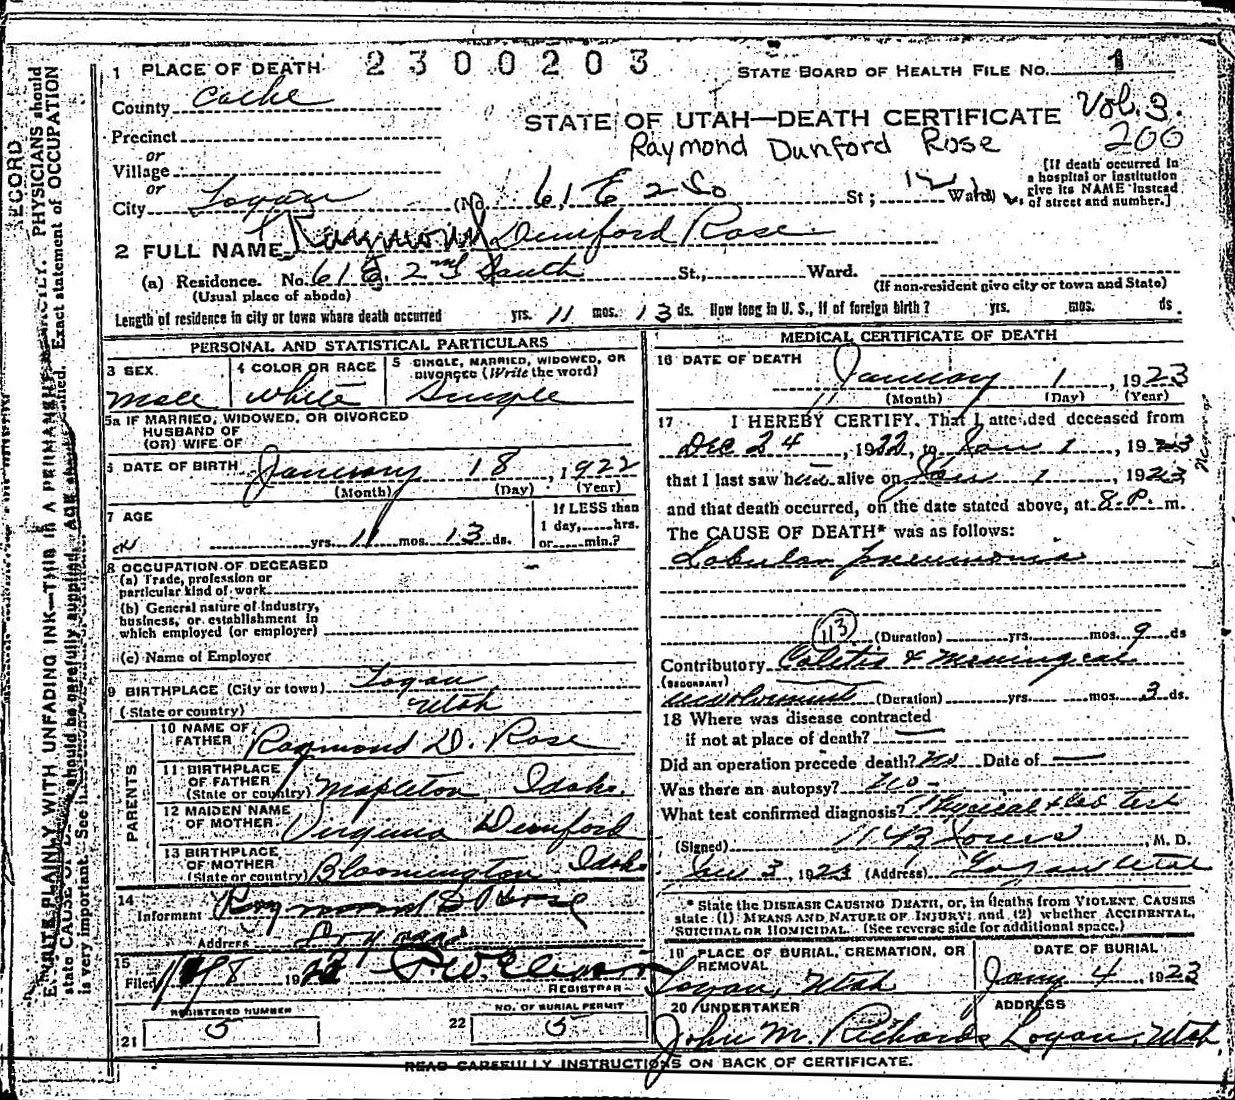 2300203
1 PLACE OF DEATH
STATE BOARD OF HEALTH FILE NO. 1
County Cache
STATE OF UTAH—DEATH CERTIFICATE Vol. 3.
200
Precinct
Raymond Dunford Rose
or
Village
or
City Logan (No. 61 E 2 So St; 12th Ward)
[If death occurred in
a hospital or institution
give its NAME instead
of street and number.]
2 FULL NAME Raymond Dunford Rose
(a) Residence. No. 61 E. 2nd South St., Ward.
(Usual place of abode)
(If non-resident give city or town and State)
Length of residence in city or town where death occurred yrs. 11 mos. 13 ds. How long in U. S., if of foreign birth? yrs. mos. ds.
PERSONAL AND STATISTICAL PARTICULARS
3 SEX
Male
4 COLOR OR RACE
White
5 SINGLE, MARRIED, WIDOWED, OR
DIVORCED (Write the word)
Single
5a IF MARRIED, WIDOWED, OR DIVORCED
HUSBAND OF
(OR) WIFE OF
6 DATE OF BIRTH January 18, 1922
(Month) (Day) (Year)
7 AGE
yrs. 11 mos. 13 ds.
If LESS than
1 day, hrs.
or min.?
8 OCCUPATION OF DECEASED
(a) Trade, profession or
particular kind of work
(b) General nature of Industry,
business, or establishment in
which employed (or employer)
(c) Name of Employer
9 BIRTHPLACE (City or town) Logan
(State or country) Utah
PARENTS
10 NAME OF
FATHER Raymond D. Rose
11 BIRTHPLACE
OF FATHER
(State or country) Mapleton, Idaho.
12 MAIDEN NAME
OF MOTHER Virginia Dunford
13 BIRTHPLACE
OF MOTHER
(State or country) Bloomington Idaho
14
Informant Raymond D Rose
Address Logan
15
Filed 1922
REGISTRAR
REGISTERED NUMBER
21 5
NO. OF BURIAL PERMIT
22 5
MEDICAL CERTIFICATE OF DEATH
16 DATE OF DEATH
January 1, 1923
(Month) (Day) (Year)
17 I HEREBY CERTIFY, That I attended deceased from
Dec 24, 1922, to Jan 1, 1923
that I last saw him alive on Jan 1, 1923
and that death occurred, on the date stated above, at 8 P. m.
The CAUSE OF DEATH* was as follows:
Lobular pneumonia
113
(Duration) yrs. mos. 9 ds
Contributory Colitis & meningeal
(SECONDARY)
involvement (Duration) yrs. mos. 3 ds.
18 Where was disease contracted
if not at place of death?
Did an operation precede death? No Date of
Was there an autopsy? No
What test confirmed diagnosis? Physical & lab test
(Signed) M. D.
Jan 3, 1923 (Address) Logan Utah
* State the DISEASE CAUSING DEATH, or, in deaths from VIOLENT CAUSES
state (1) MEANS AND NATURE OF INJURY; and (2) whether ACCIDENTAL,
SUICIDAL OR HOMICIDAL. (See reverse side for additional space.)
19 PLACE OF BURIAL, CREMATION, OR
REMOVAL
Logan, Utah
DATE OF BURIAL
Jany 4, 1923
20 UNDERTAKER
John M. Richards
ADDRESS
Logan, Utah.
READ CAREFULLY INSTRUCTIONS ON BACK OF CERTIFICATE.